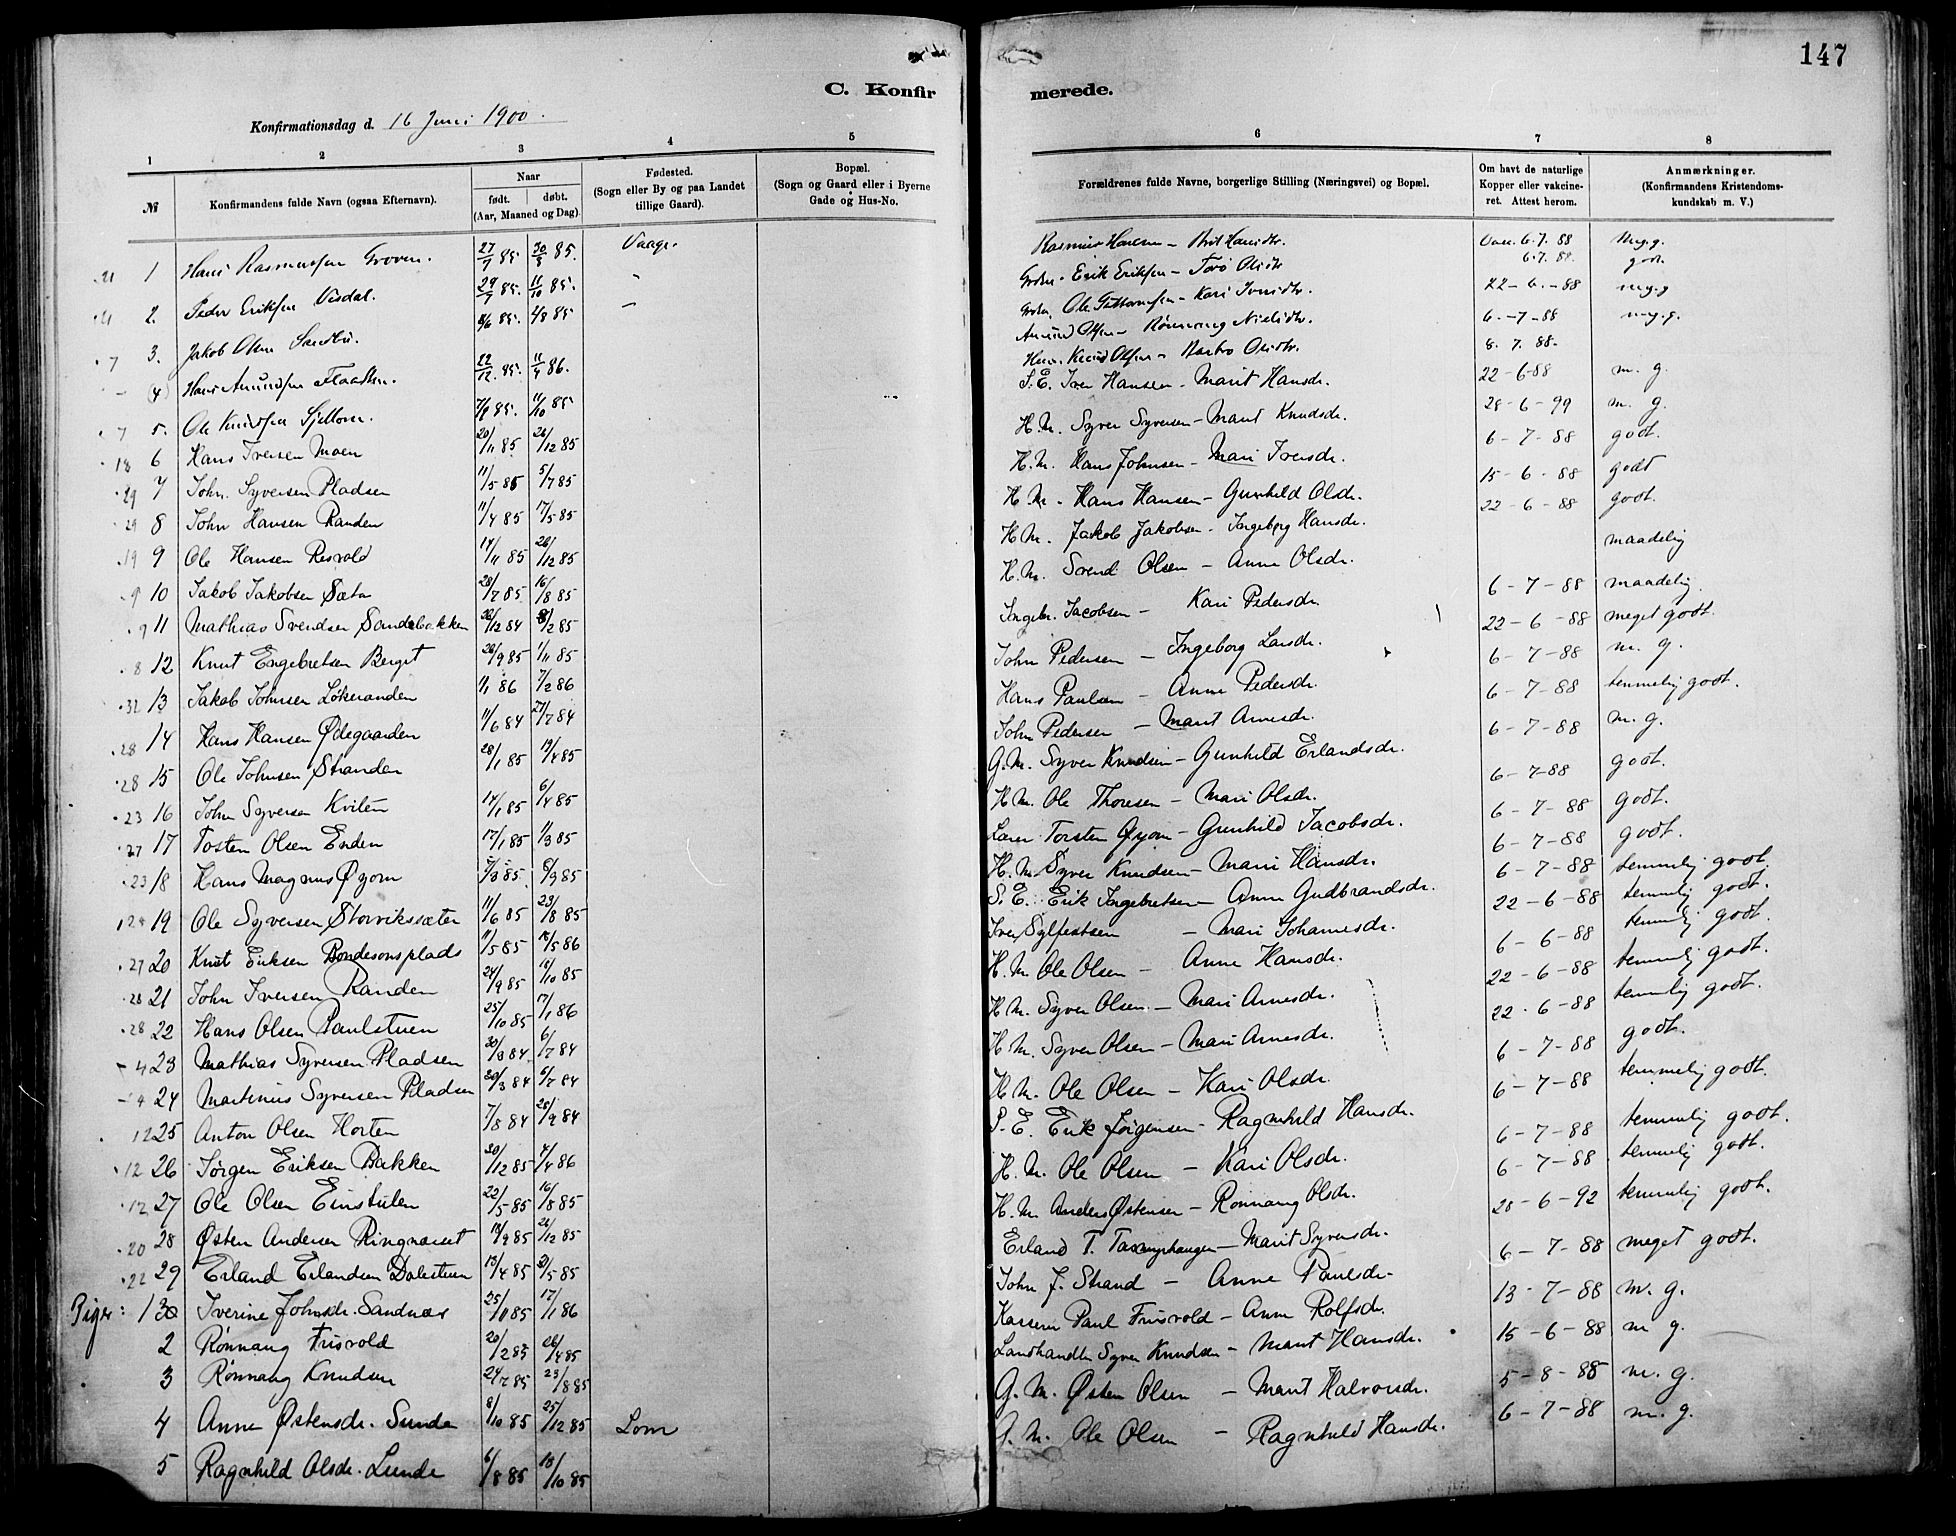 147
C. Konfirmerede.
Konfirmationsdag d. 16 Juni 1900.
1 2 3 4 5 6 7 8
№ Konfirmandens fulde Navn (ogsaa Efternavn). Naar født. døbt. (Aar, Maaned og Dag). Fødested. (Sogn eller By og paa Landet tillige Gaard). Bopæl. (Sogn og Gaard eller i Byerne Gade og Hus-No. Forældrenes fulde Navne, borgerlige Stilling (Næringsvei) og Bopæl. Om havt de naturlige Kopper eller vakcineret. Attest herom. Anmærkninger. (Konfirmandens Kristendomskundskab m. V.)
21 1 Hans Rasmussen Groven. 27/7 85 30/8 85. Vaage. Rasmus Hansen - Brit Hansdtr. Vacc. 6.7. 88 Meg. g.
21 2. Peder Eriksen Visdal. 29/9 85. 11/10 85. Erik Eriksen - Torø Olsdtr 6.7. 88. godt.
7 3. Jakob Olsen Sandbu. 8/6 85. 4/8 85 Kari Iversdtr. 22-6.-88 meg. g
4) Hans Amundsen 22/12. 85. 11/4 86. Amund Olsen - Rønnaug Nielsdtr. 6.-7-88 meg. g.
7 5. Ole Knudsen 7/9 85. 11/10 85 Knud Olsen - Barbro Olsdtr. 8. 7. 88.
18 6 Hans Iversen Moen 20/11 85 26/12 85 S. E. Iver Hansen - Marit Hansdr. 22-6-88 m. g.
29 7 John Syversen Pladsen 11/5 85 5/7 85 H. M. Syver Syversen - Marit Knudsdr. 28-6-99 m. g.
29 8 John Hansen Randen 11/4 85 17/5 85 H. M. Hans Johnsen - Mari Iversdr. 6-7-88 godt.
19 9 Ole Hansen Resvold 14/11 85 26/12 85 H. M. Hans Hansen - Gunhild Olsdr. 15-6-88 godt
9 10 Jakob Jakobsen Sæta 28/7 85 16/8 85 H. M. Jakob Jakobsen - Ingeborg Hansdr. 22-6-88 godt.
9 11 Mathias Svendsen Sandebakken 26/12 84 8/2 85 H. M. Svend Olsen - Anne Olsdr. maadelig
8 12 Knut Engebretsen Berget 26/9 85 1/11 85 Ingebr. Jacobsen - Kari Pedersdr. 6-7-88 maadelig.
32 13 Jakob Johnsen Løkeranden 1/1 86 7/2 86 John Pedersen - Ingeborg Larsdr. 22-6-88 meget godt.
28 14 Hans Hansen Ødegaarden 11/6 84 27/7 84 Hans Paulsen - Anne Pedersdr. 6-7-88 m. g.
28 15 Ole Johnsen Stranden 28/1 85 19/4 85 John Pedersen - Marit Arnesdr. 6-7-88 temmelig godt.
23 16 John Syversen Kviten 14/1 85 6/4 85 G. M. Syver Knudsen - Gunhild Erlandsdr. 6-7-88 m. g.
27 17 Tosten Olsen Enden 17/1 85 1/3 85 H. M. Ole Thoresen - Mari Olsdr. 6-7-88 godt.
23 18 Hans Magnus Øyom 5/3 85. 8/3 85 Lærer Torsten Øyom - Gunhild Jacobsdr. 6-7-88 godt.
124 19 Ole Syversen Storvikssæter 11/6 85 23/8 85 H. M. Syver Knudsen - Mari Hansdr. 6-7-88 godt.
27 20 Knut Eriksen Bondesonsplads 11/5 85 15/5 86 S. E. Erik Ingebretsen - Anne Gudbrandsdr. 6-7-88 temmelig godt.
28 21 John Iversen Randen 24/9 85 18/10 85 Iver Sylfestsen - Mari Johannesdr. 22-6-88 temmelig godt.
28 22 Hans Olsen Paulstuen 25/10 85 17/1 86 H. M. Ole Olsen - Anne Hansdr. 6-6-88 temmelig godt.
4 23 Mathias Syversen Pladsen 30/3 84 6/7 84 H. M. Syver Olsen - Mari Arnesdr. 22-6-88 temmelig godt.
4 24 Martinus Syversen Pladsen 30/3 84 6/7 84 H. M. Syver Olsen - Mari Arnesdr. 22-6-88 temmelig godt.
12 25 Anton Olsen Horten 7/8 84 28/9 84 H. M. Ole Olsen - Kari Olsdr. 6-7-88 godt.
12 26 Jørgen Eriksen Bakken 30/12 85 4/4 86 S. E. Erik Jørgensen - Ragnhild Hansdr. 6-7-88 temmelig godt.
12 27 Ole Olsen Einstulen 22/5 85 16/8 85 H. M. Ole Olsen - Kari Olsdr. 6-7-88 temmelig godt.
20 28 Østen Andersen Ringnæset 14/9 85 26/12 85 H. M. Anders Østensen - Rønnaug Olsdr. 6-7-88 temmelig godt.
22 29 Erland Erlandsen Dalestuen 13/4 85 31/5 85 Erland T. - Marit Syversdr. 28-6-92 temmelig godt.
Piger: 1 30 Iverine Johnsdr. Sandnæs 25/11 85 17/1 86 John J. Strand - Anne Paulsdr. 6-7-88 meget godt.
2 Rønnaug Frisvold 20/2 85 26/4 85 Kasserer Paul Frisvold - Anne Rolfsdr. 13-7-88 m. g.
3 Rønnaug Knudsen 24/7 85 23/8 85 Landhandler Syver Knudsen - Marit Hansdr. 15-6-88 m g.
4 Anne Østensdr. Sunde 8/10 85 25/12 85 Lom G. M. Østen Olsen - Marit Halvorsdr. 5-8-88 m. g.
5 Ragnhild Olsdr. Lunde 6/8 85 18/10 85 G. M. Ole Olsen - Ragnhild Hansdr. 6-7-88 m. g.